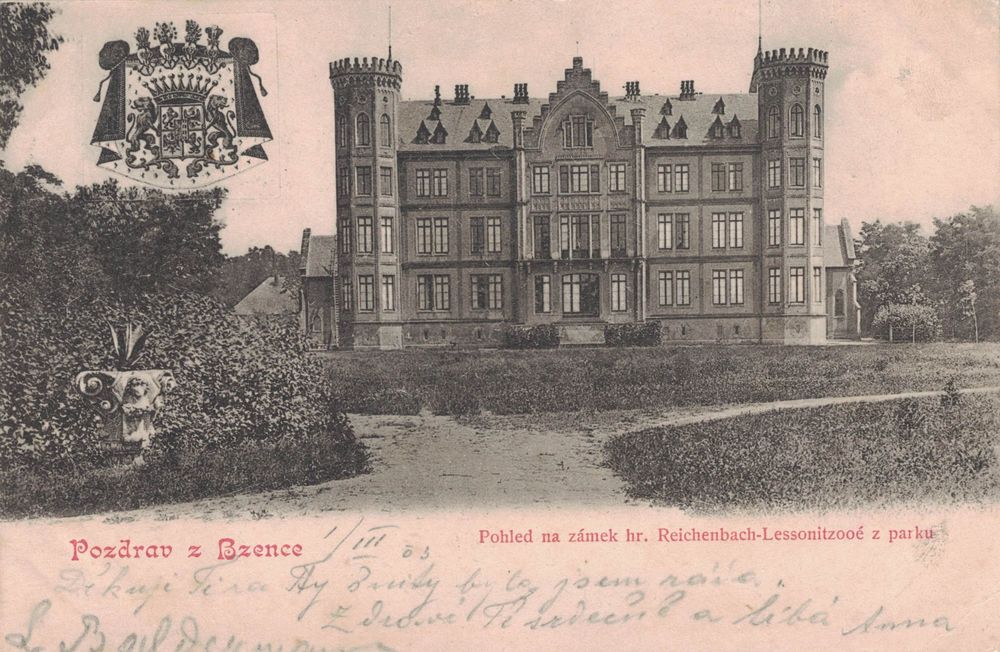 Pozdrav z Bzence
1/III 03
Pohled na zámek hr. Reichenbach-Lessonitzooé z parku
Děkuji Ti za byla jsem ráda.
Zdraví Tě srdečně a líbá Anna